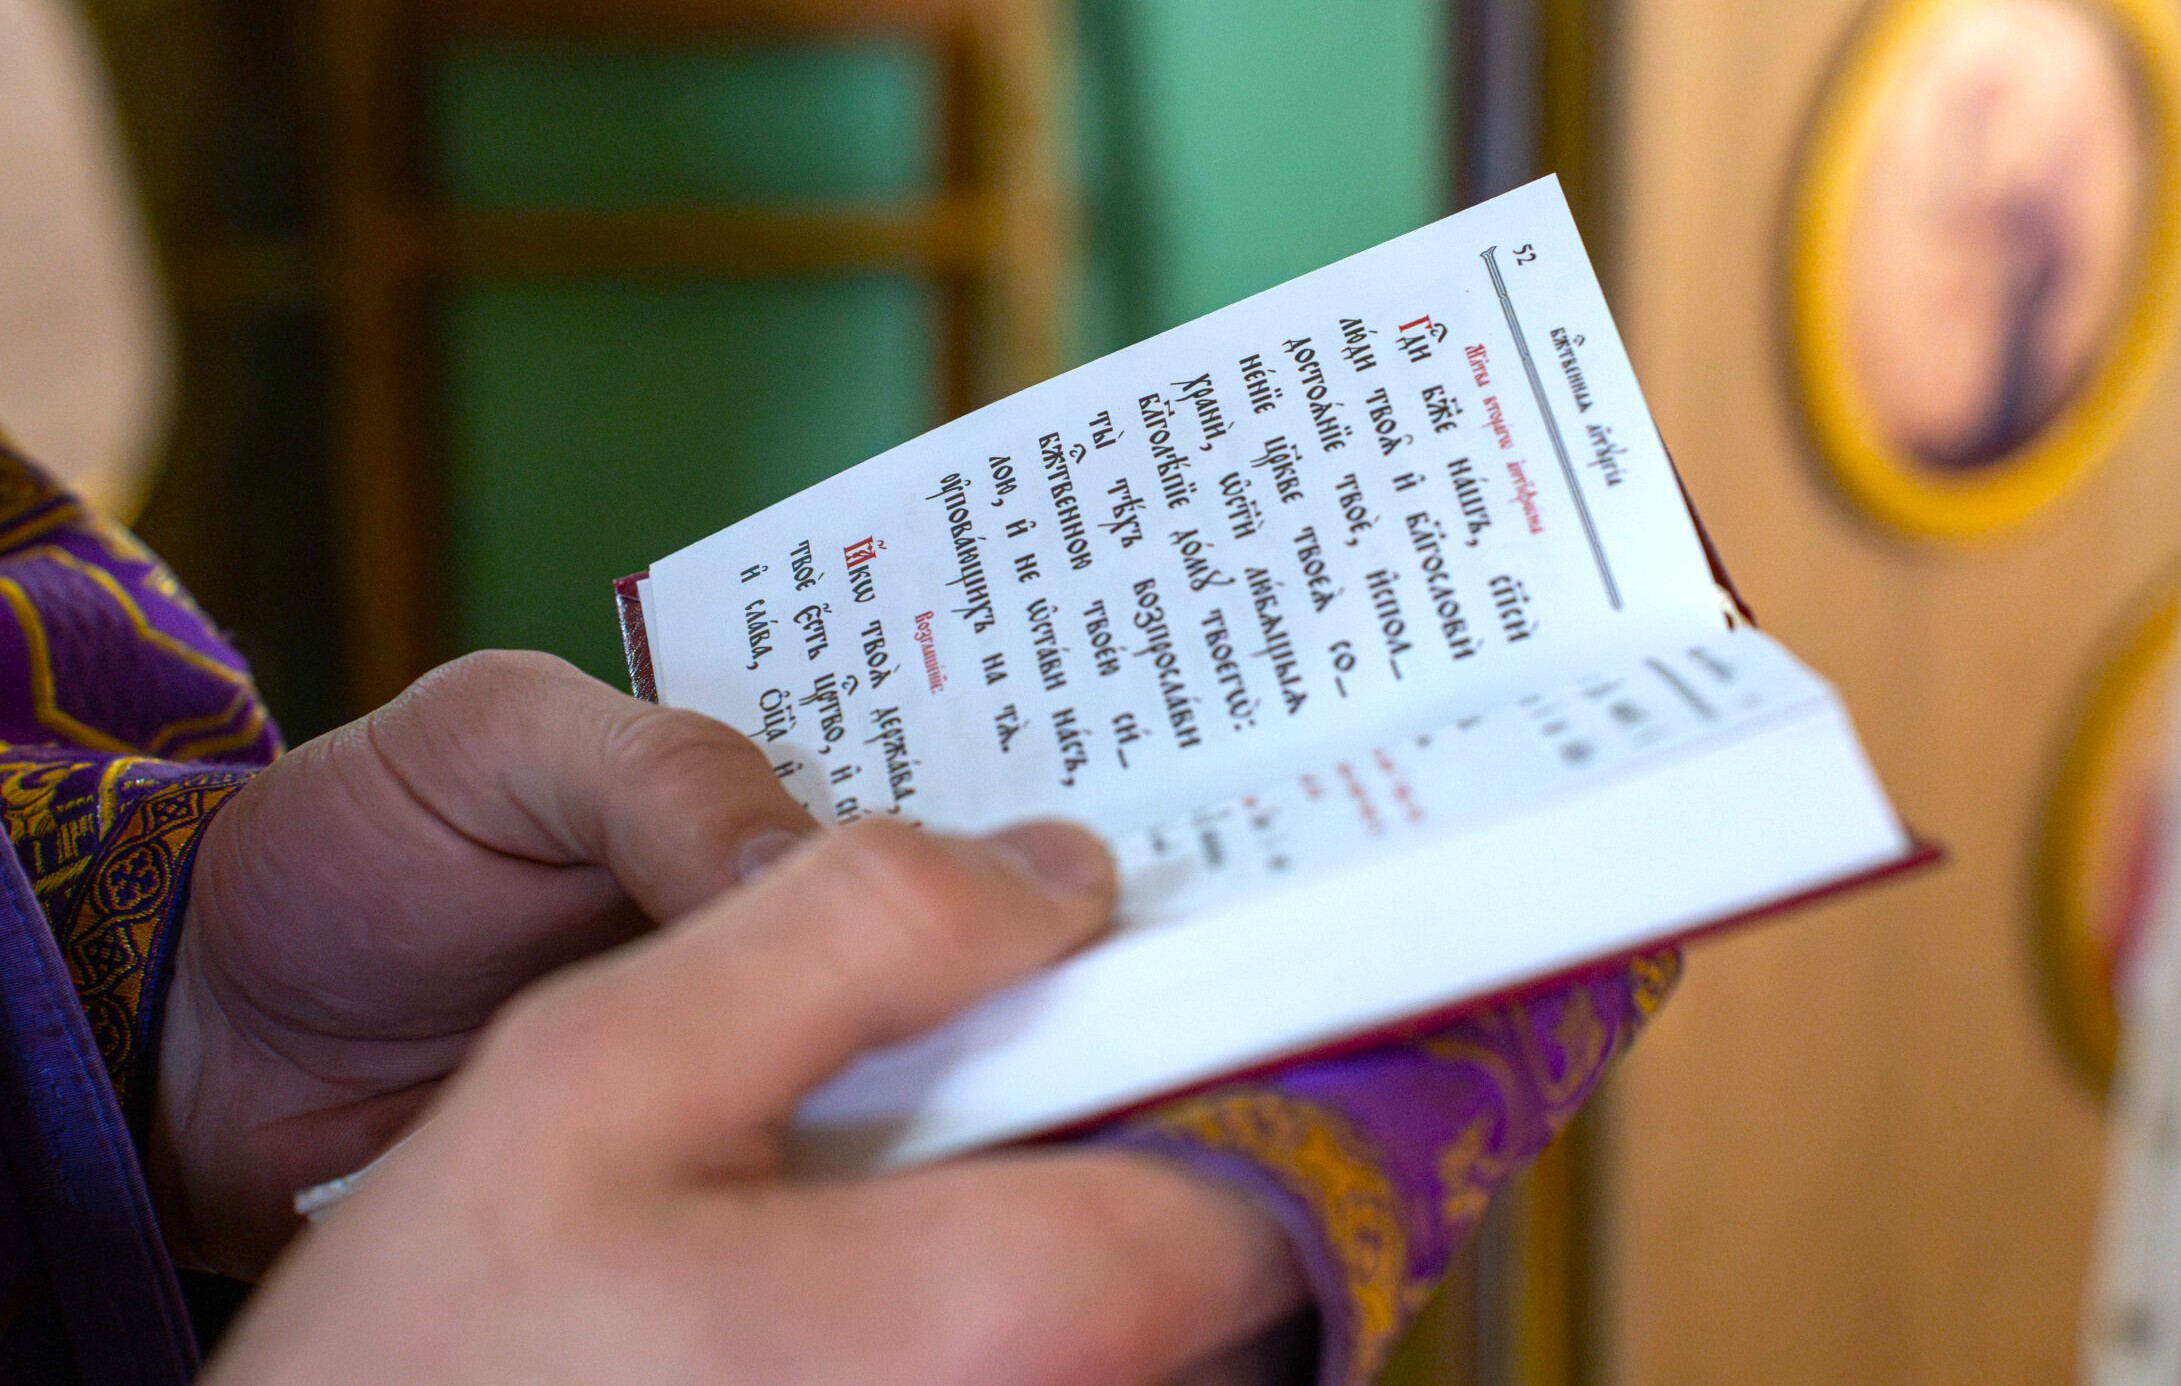 52
бж҃твеннаѧ лїтꙋргі́а
Мл҃тва втора́гѡ а҆нтїфѡ́на
Гд҇и бж҃е на́шъ, сп҃сѝ
лю́ди твоѧ̑ и҆ бл҃гословѝ
достоѧ́нїе твоѐ, и҆спол_
не́нїе цр҃кве твоеѧ̀ со_
хранѝ, ѡ҆ст҃ѝ лю́бѧщыѧ
бл҃голѣ́пїе до́мꙋ твоегѡ̀:
ты̀ тѣ́хъ возпросла́ви
бж҇твенною твое́ю си́_
лою, и҆ не ѡ҆ста́ви на́съ,
ᲂу҆пова́ющихъ на тѧ̀.
Возглаше́нїе:
Ꙗ҆́кѡ твоѧ̀ держа́ва,
твоѐ є҆́сть црⷭ҇тво, и҆ си́
и҆ сла́ва, Ѻ҆ц҃а̀ и҆